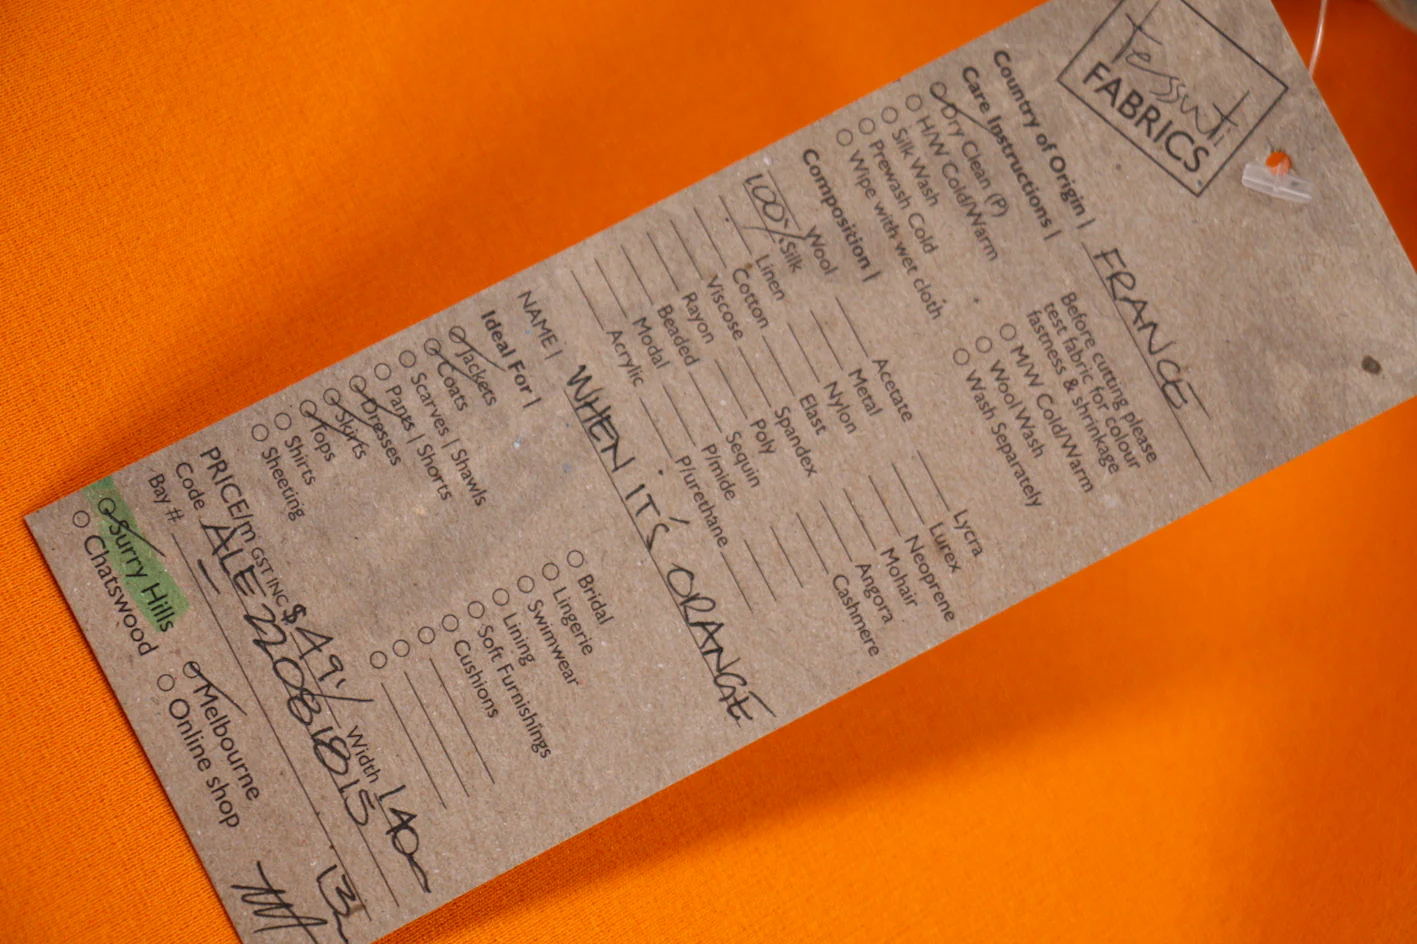 Tessuti
FABRICS
Country of Origin | FRANCE
Care Instructions |
Dry Clean (P)
H/W Cold/Warm
Silk Wash
Prewash Cold
Wipe with wet cloth
Before cutting please
test fabric for colour
fastness & shrinkage
M/W Cold/Warm
Wool Wash
Wash Separately
Composition |
Wool
100% Silk
Linen
Cotton
Viscose
Rayon
Beaded
Modal
Acrylic
Acetate
Metal
Nylon
Elast
Spandex
Poly
Sequin
P/mide
P/urethane
Lycra
Lurex
Neoprene
Mohair
Angora
Cashmere
NAME | WHEN IT'S ORANGE
Ideal For |
Jackets
Coats
Scarves | Shawls
Pants | Shorts
Dresses
Skirts
Tops
Shirts
Sheeting
Bridal
Lingerie
Swimwear
Lining
Soft Furnishings
Cushions
PRICE/m GST INC $ 49 Width 140
Code ALE 22081815
Bay #
Surry Hills
Chatswood
Melbourne
Online shop